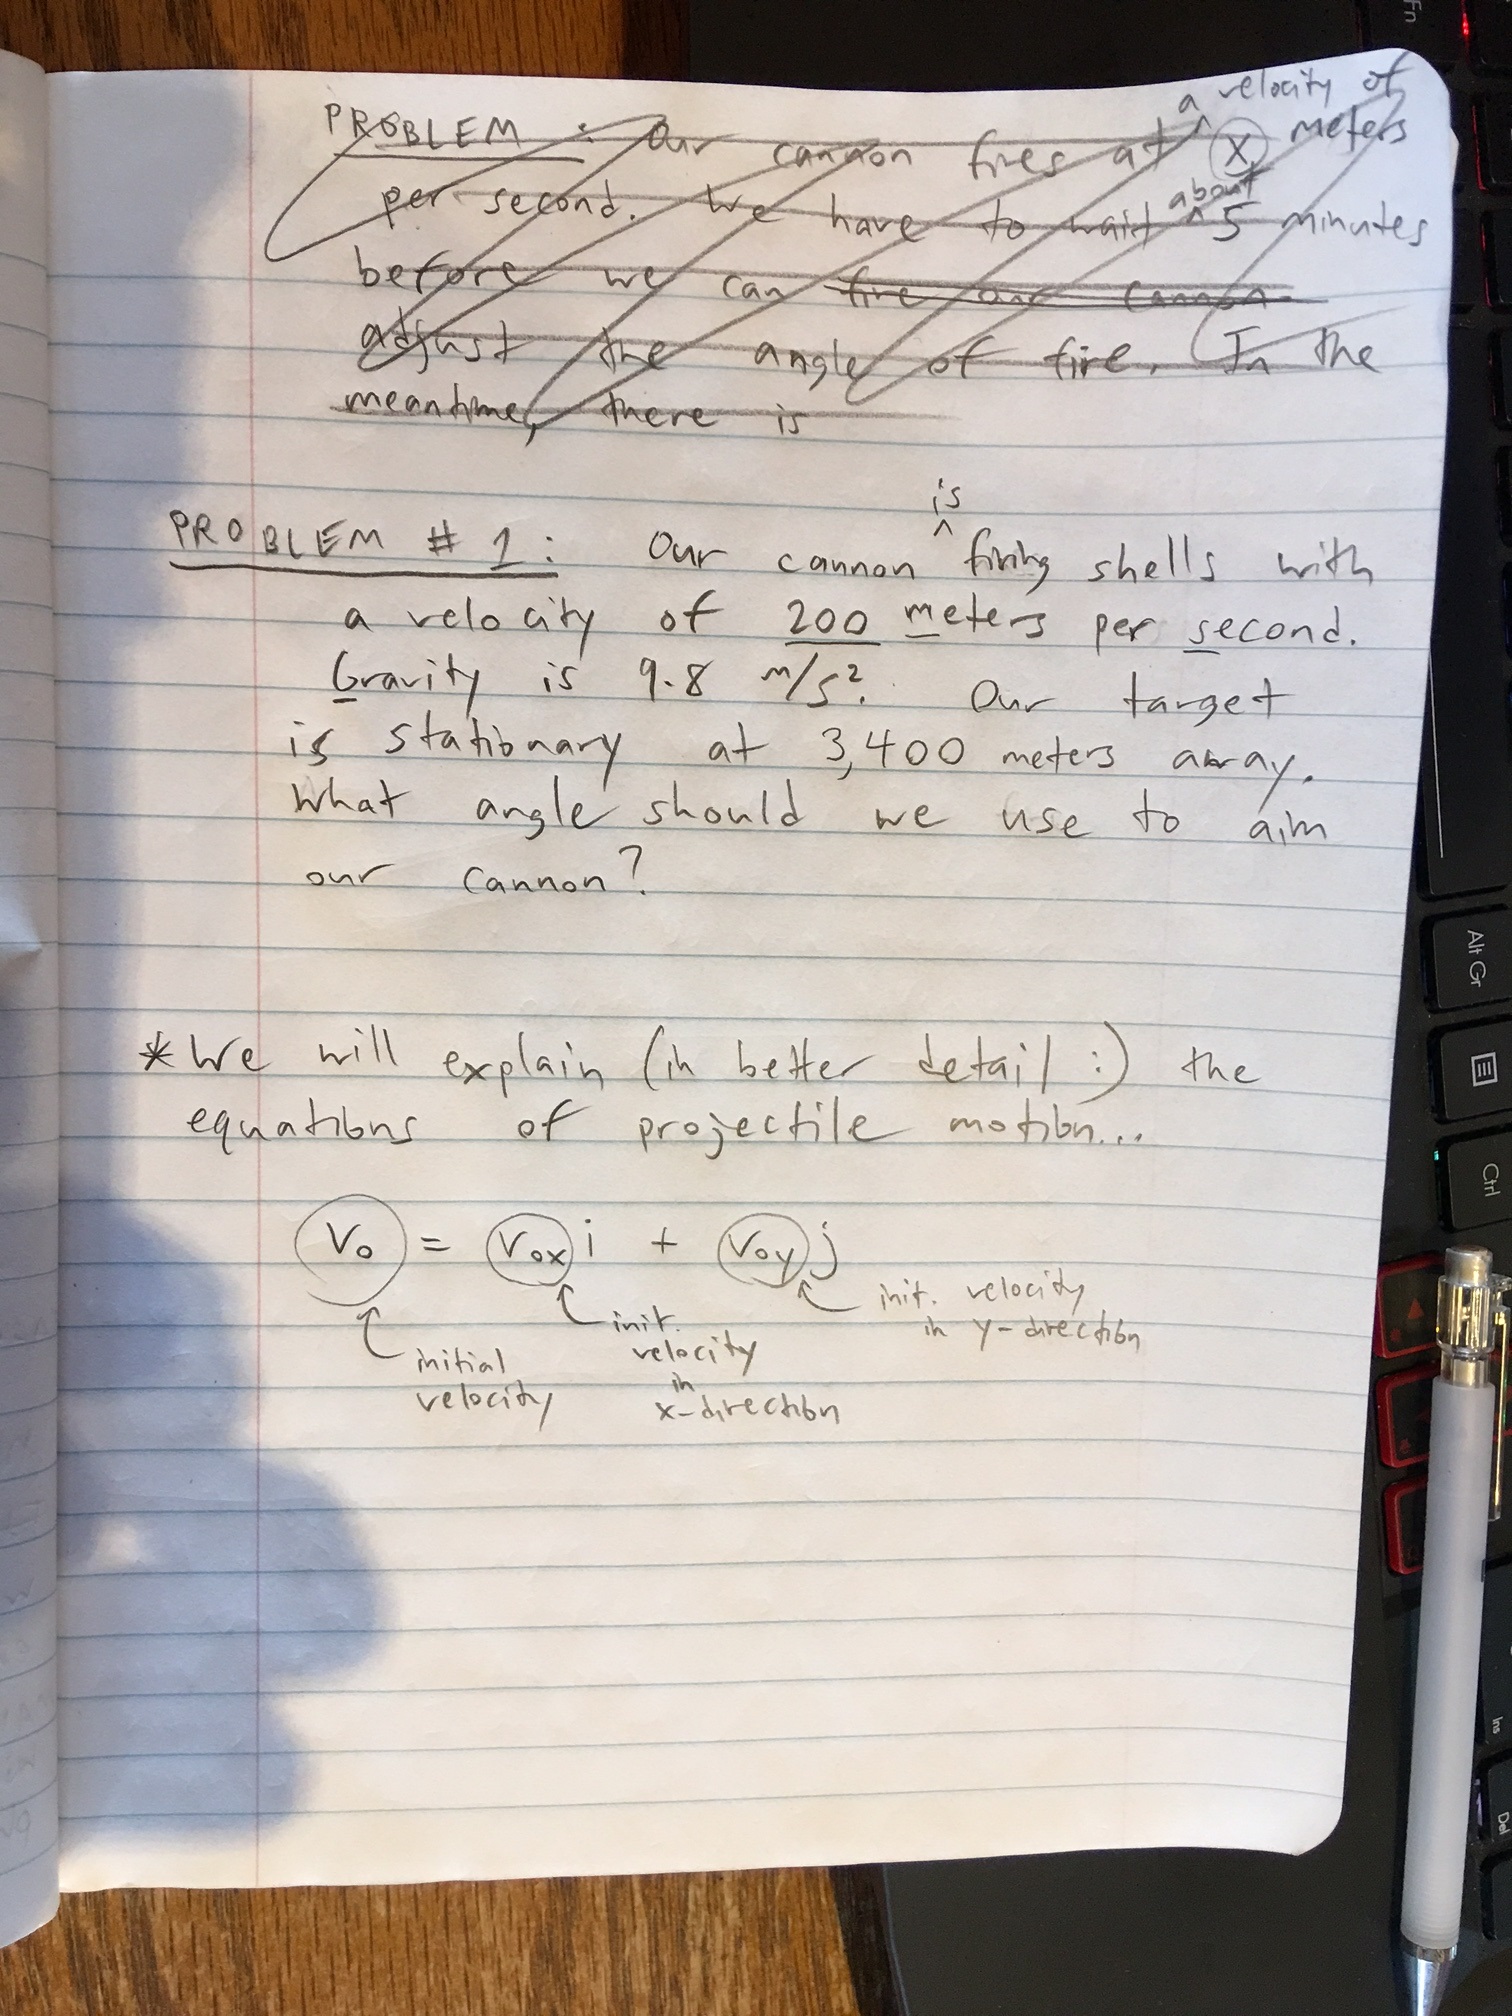 PROBLEM : Our cannon fires at ^ a velocity of (X) meters
per second. We have to wait ^ about 5 minutes
before we can fire our cannon.
adjust the angle of fire. In the
meantime, there is
PROBLEM # 1: Our cannon ^ is firing shells with
a velocity of 200 meters per second.
Gravity is 9.8 m/s². Our target
is stationary at 3,400 meters away.
What angle should we use to aim
our cannon?
* We will explain (in better detail :) the
equations of projectile motion...
V₀ = V₀ₓ i + V₀y j
initial
velocity
init.
velocity
in
x-direction
init. velocity
in y-direction
Fn
Alt Gr
Ctrl
Ins
Del